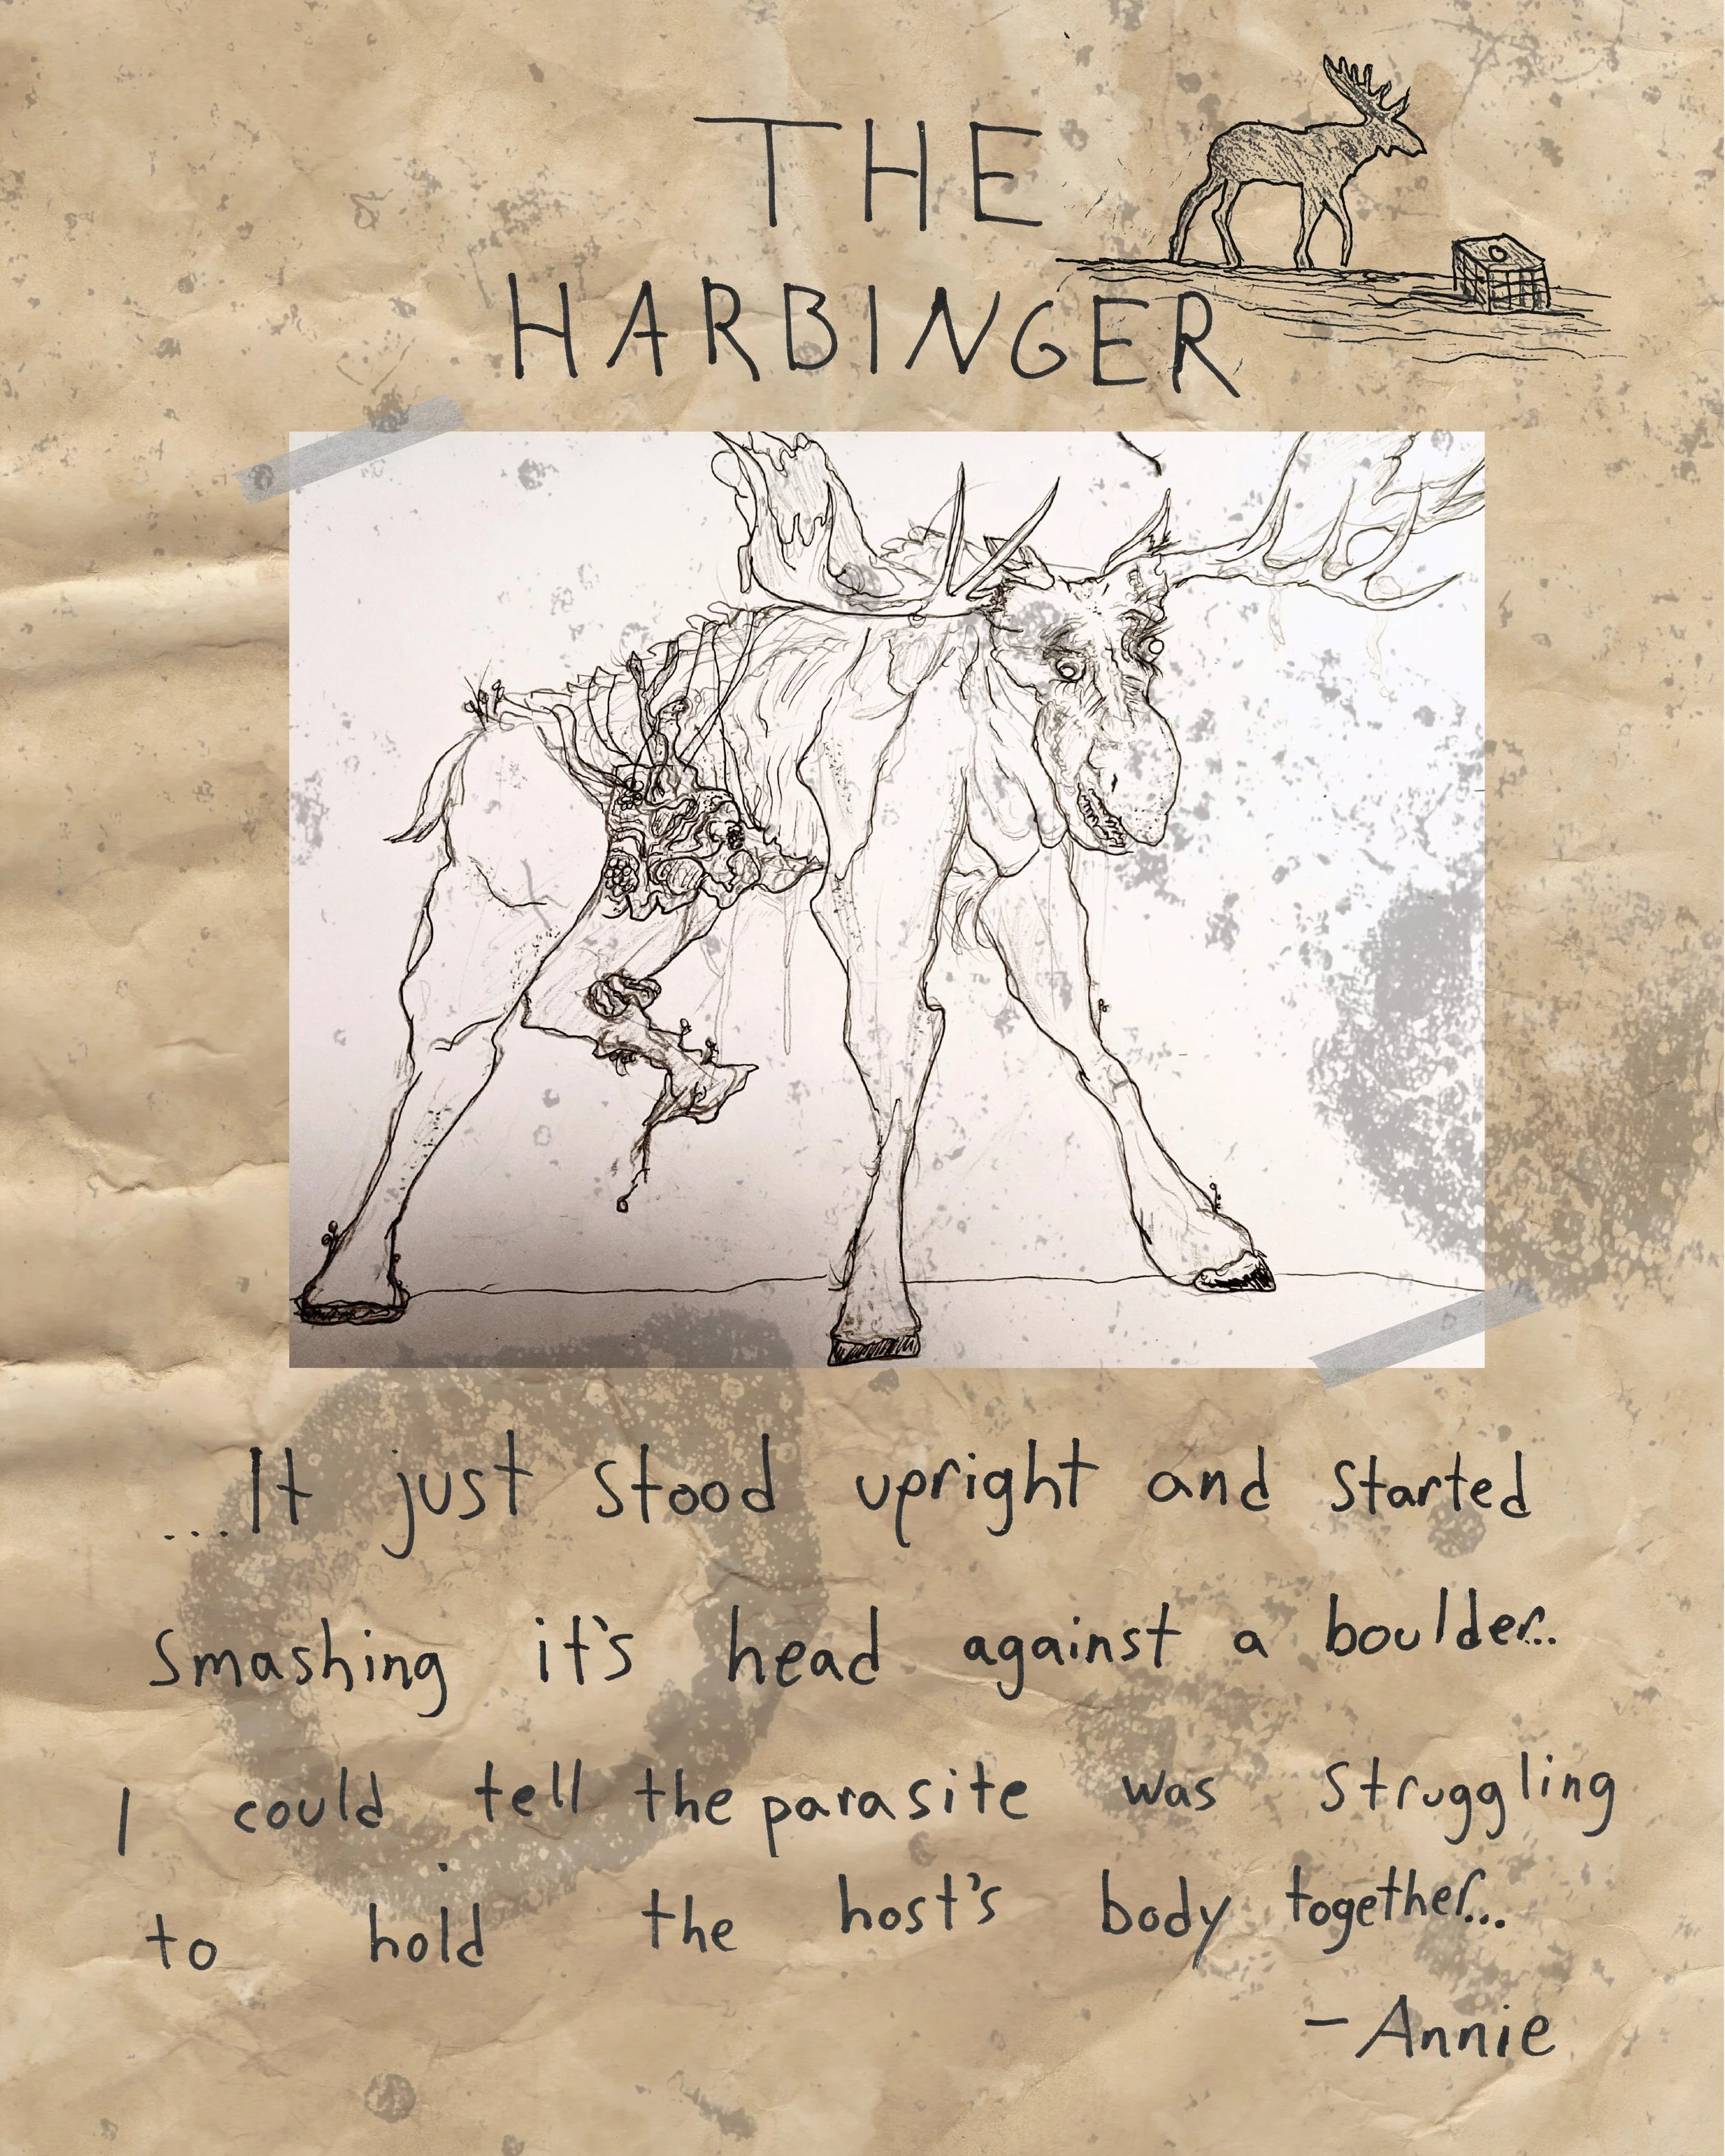 THE
HARBINGER
...It just stood upright and started
smashing it's head against a boulder..
I could tell the parasite was struggling
to hold the host's body together...
- Annie